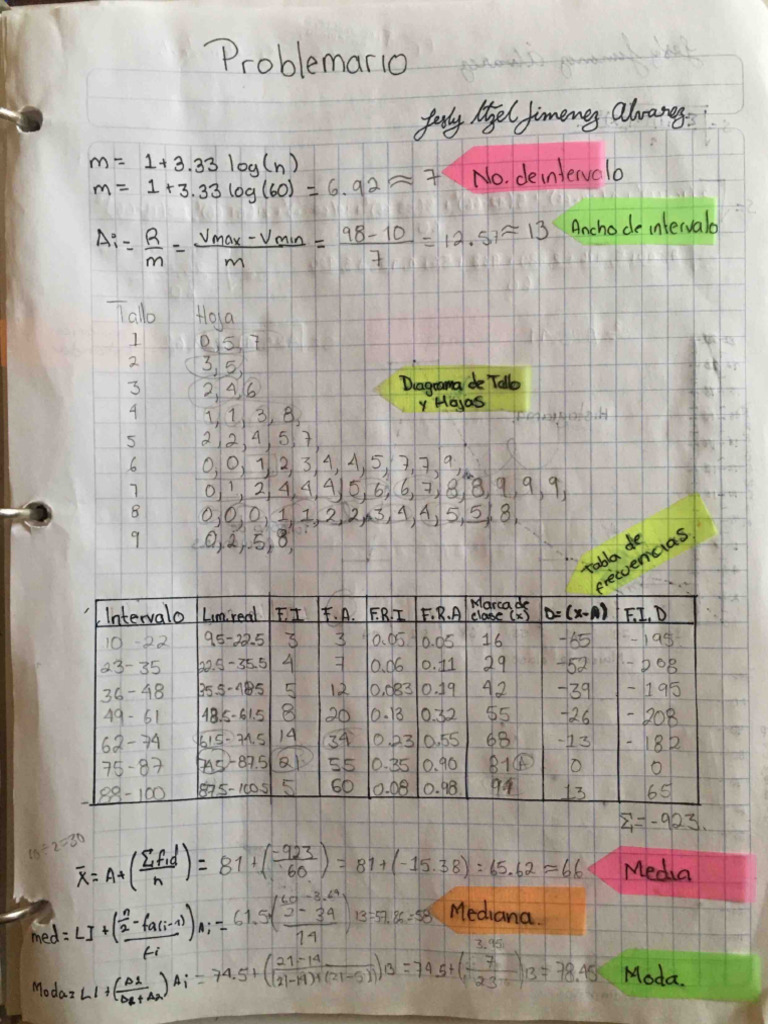 Problemario
Jesly Itzel Jimenez Alvarez.
m = 1+3.33 log(n)
m = 1+3.33 log(60) = 6.92 ≈ 7
No. de intervalo
Ai = R/m = Vmax - Vmin/m = 98-10/7 = 12.57 ≈ 13
Ancho de intervalo
Tallo Hoja
1 0, 5, 7
2 3, 5,
3 2, 4, 6
4 1, 1, 3, 8,
5 2, 2, 4, 5, 7,
6 0, 0, 1, 2, 3, 4, 4, 5, 7, 7, 9,
7 0, 1, 2, 4, 4, 4, 5, 6, 6, 7, 8, 8, 9, 9, 9,
8 0, 0, 0, 1, 1, 2, 2, 3, 4, 4, 5, 5, 8,
9 0, 2, 5, 8,
Diagrama de Tallo
y Hojas
Tabla de
frecuencias
Intervalo Lim. real F.I F.A. F.R.I F.R.A Marca de clase (x) D=(x-A) F.I.D
10-22 9.5-22.5 3 3 0.05 0.05 16 -65 -195
23-35 22.5-35.5 4 7 0.06 0.11 29 -52 -208
36-48 35.5-48.5 5 12 0.083 0.19 42 -39 -195
49-61 48.5-61.5 8 20 0.13 0.32 55 -26 -208
62-74 61.5-74.5 14 34 0.23 0.55 68 -13 -182
75-87 74.5-87.5 21 55 0.35 0.90 81 A 0 0
88-100 87.5-100.5 5 60 0.08 0.98 94 13 65
Σ=-923.
X̄ = A+(Σfid/n) = 81+(-923/60) = 81+(-15.38) = 65.62 ≈ 66
Media
med = LI+(n/2 - fa(i-1)/fi)Ai = 61.5
13=57.86=58
Mediana.
Moda = LI+(Δ1/Δ1+Δ2)Ai = 74.5+(21-14/(21-14)+(21-5))13 = 74.5+(7/23)13 = 78.45
Moda.